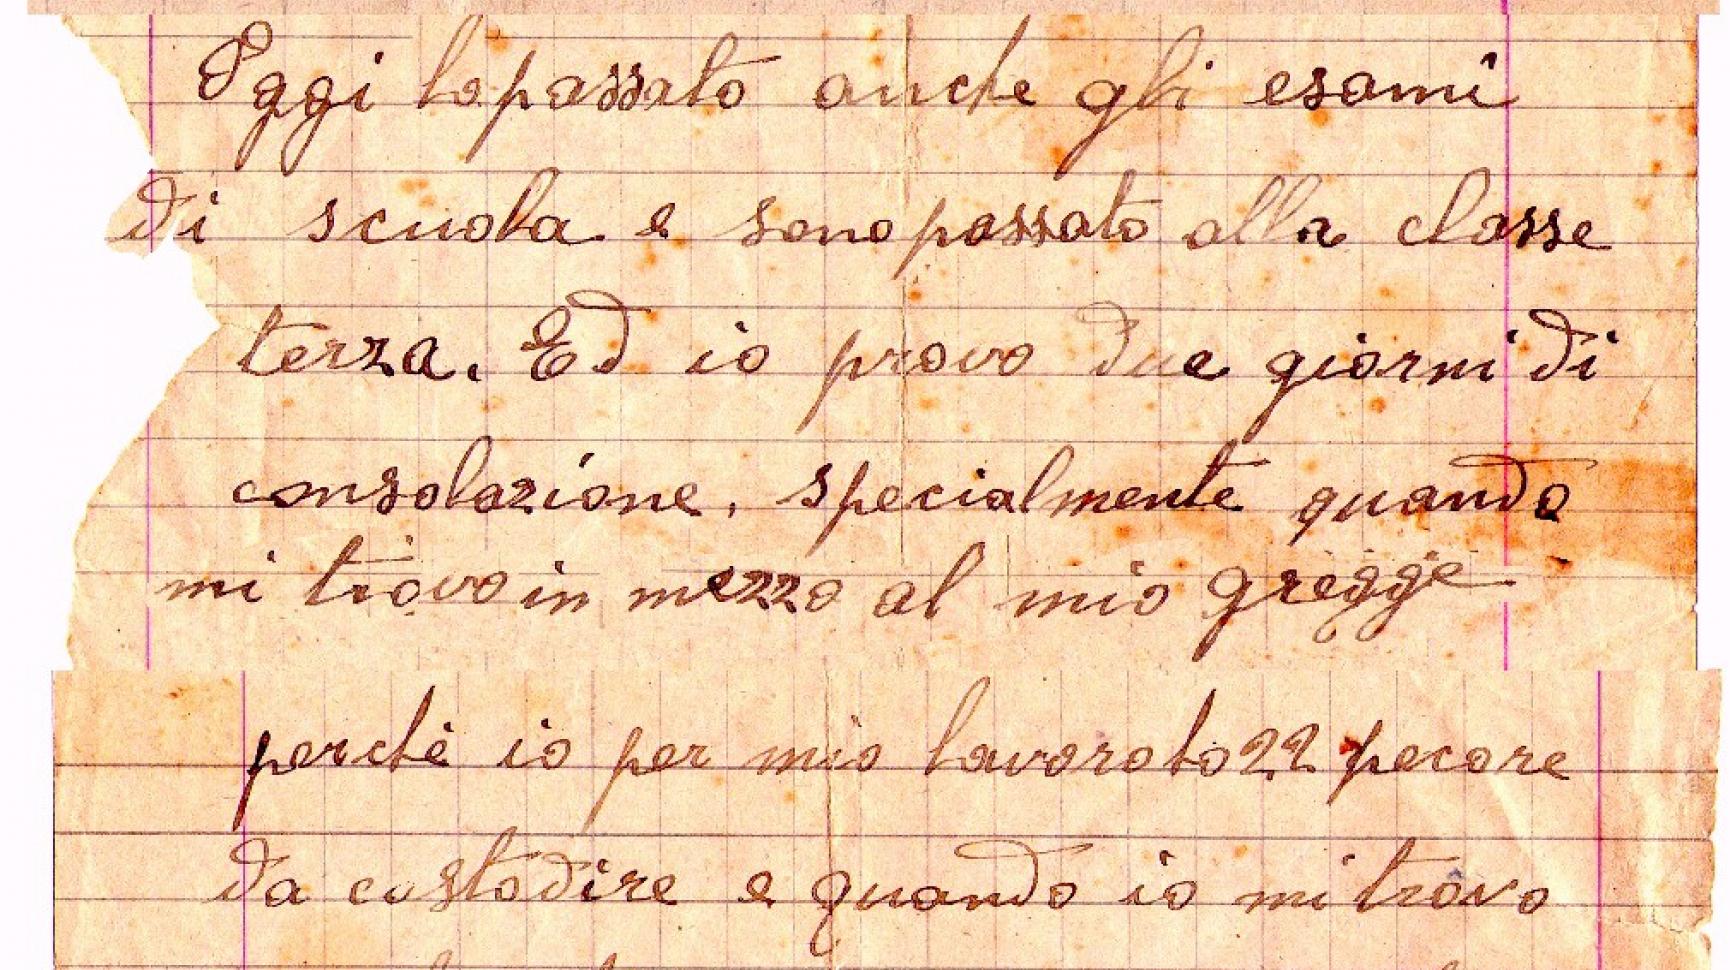 Oggi ho passato anche gli esami
di scuola e sono passato alla classe
terza. Ed io provo due giorni di
consolazione, specialmente quando
mi trovo in mezzo al mio gregge
perchè io per mio lavoro ho 22 pecore
da custodire e quando io mi trovo